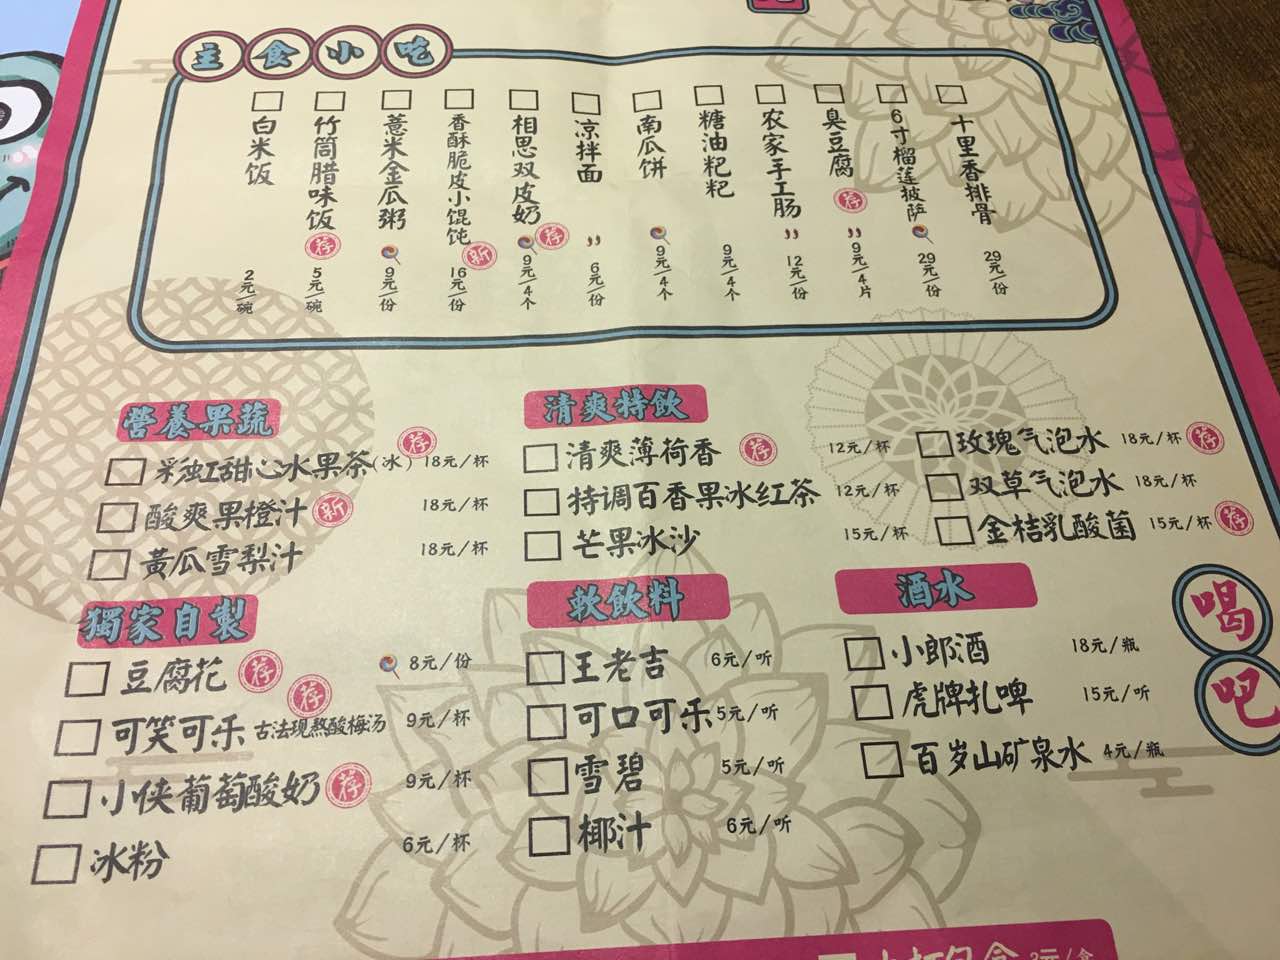 主食小吃
白米饭 2元/碗
竹筒腊味饭 荐 5元/碗
薏米金瓜粥 9元/份
香酥脆皮小馄饨 新 16元/份
相思双皮奶 荐 9元/4个
凉拌面 6元/份
南瓜饼 9元/4个
糖油粑粑 9元/4个
农家手工肠 12元/份
臭豆腐 荐 9元/4片
6寸榴莲披萨 29元/份
十里香排骨 29元/份
營養果蔬
彩虹甜心水果茶(冰) 荐 18元/杯
酸爽果橙汁 新 18元/杯
黄瓜雪梨汁 18元/杯
清爽特飲
清爽薄荷香 荐 12元/杯
特调百香果冰红茶 12元/杯
芒果冰沙 15元/杯
玫瑰气泡水 18元/杯 荐
双草气泡水 18元/杯
金桔乳酸菌 15元/杯 荐
獨家自製
豆腐花 荐 8元/份
可笑可乐 古法现熬酸梅汤 荐 9元/杯
小侠葡萄酸奶 荐 9元/杯
冰粉 6元/杯
軟飲料
王老吉 6元/听
可口可乐 5元/听
雪碧 5元/听
椰汁 6元/听
酒水
小郎酒 18元/瓶
虎牌扎啤 15元/听
百岁山矿泉水 4元/瓶
喝吧